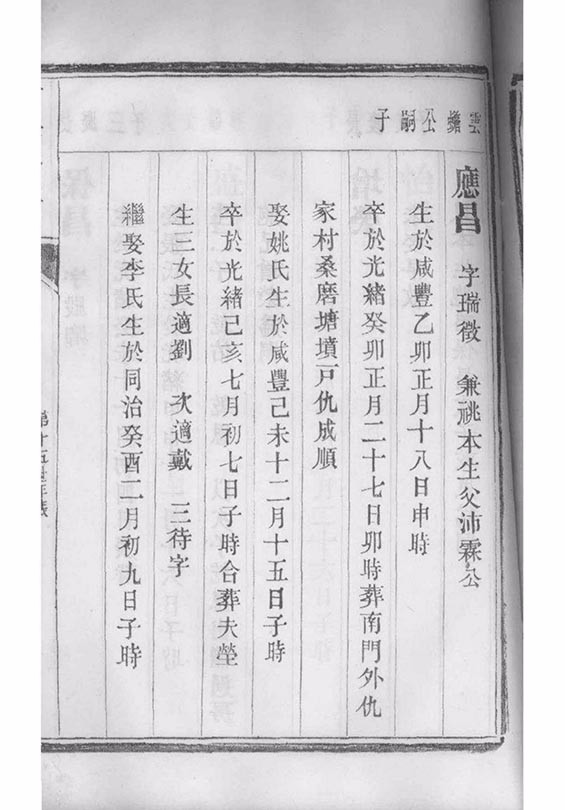 雲蟾公嗣子
應昌 字瑞徵 兼祧本生父沛霖公
生於咸豐乙卯正月十八日申時
卒於光緒癸卯正月二十七日卯時葬南門外仇
家村桑磨塘墳戶仇成順
娶姚氏生於咸豐己未十二月十五日子時
卒於光緒己亥七月初七日子時合葬夫塋
生三女長適劉 次適戴 三待字
繼娶李氏生於同治癸酉二月初九日子時
第十五世年表